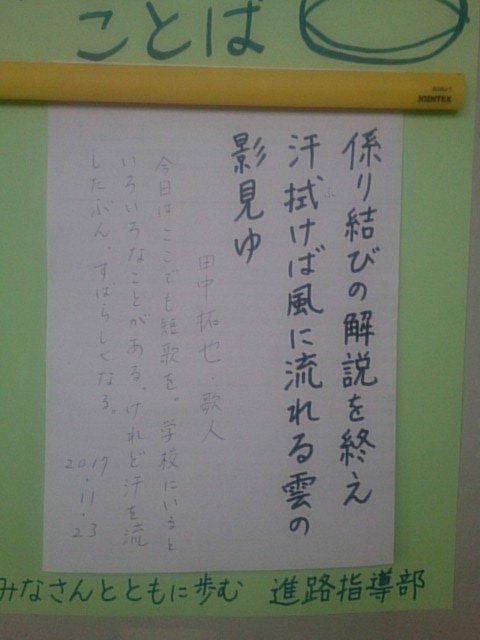 ことば
JOINTEX
係り結びの解説を終え
汗拭けば風に流れる雲の
ふ
影見ゆ
田中拓也・歌人
今日はここでも短歌を。学校にいると
いろいろなことがある。けれど汗を流
したぶん、すばらしくなる。
2017・11・23
みなさんとともに歩む 進路指導部